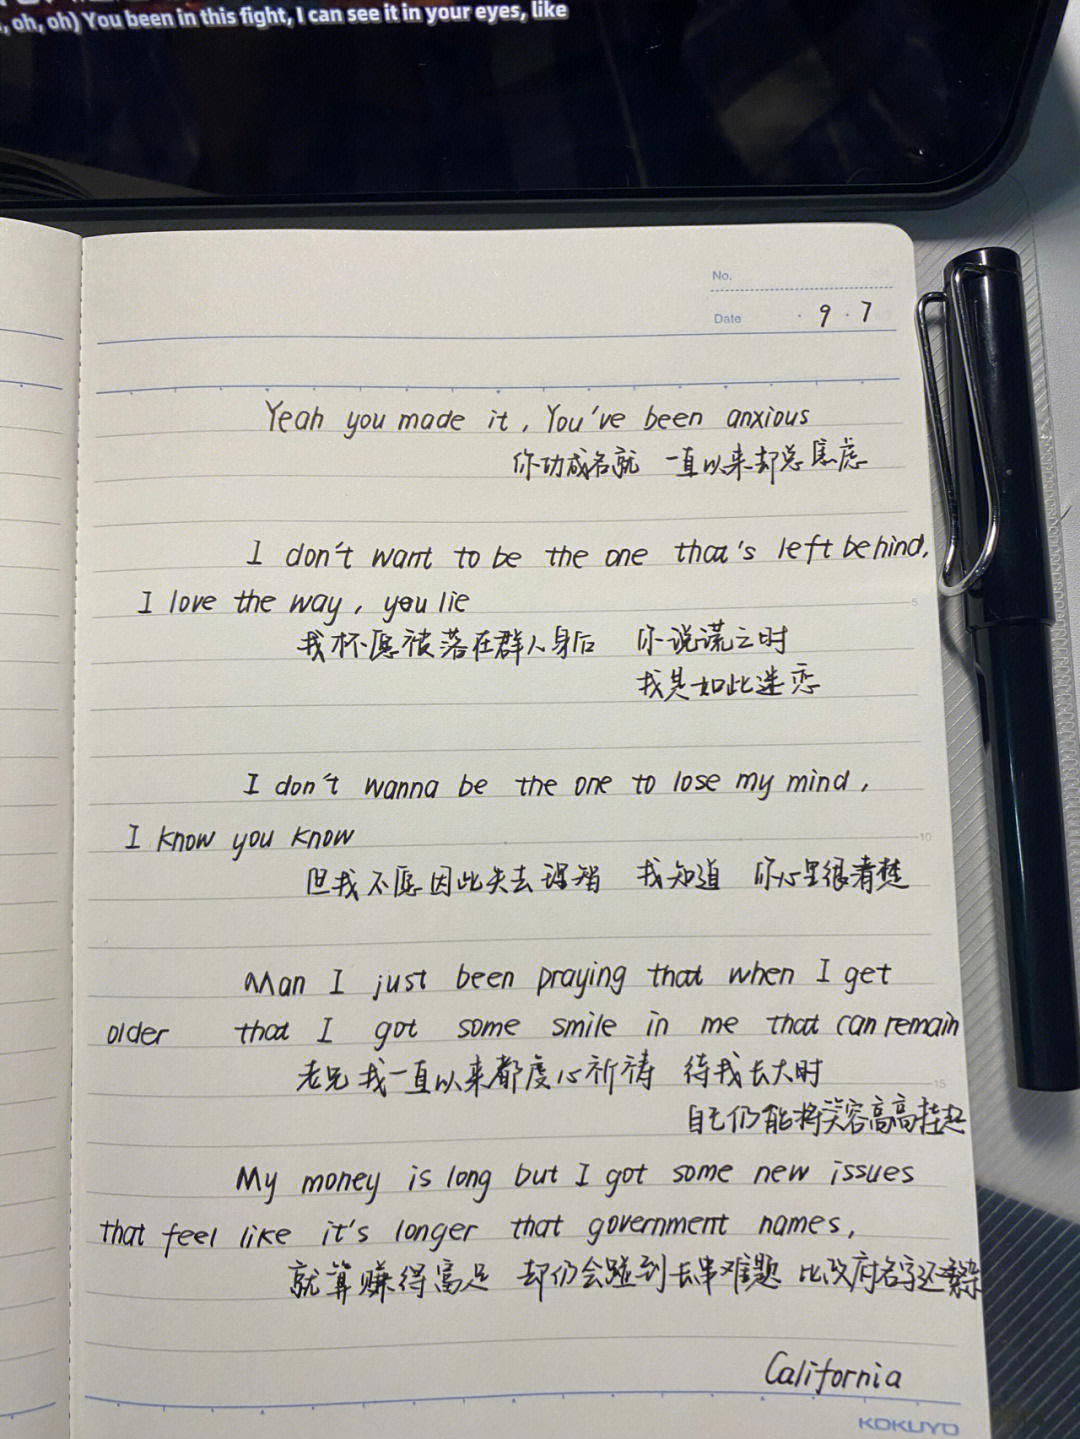 , oh, oh) You been in this fight, I can see it in your eyes, like
No.
Date · 9 · 7
Yeah you made it, You've been anxious
你功成名就 一直以来却总焦虑
I don't want to be the one that's left behind,
I love the way, you lie
5
我不愿被落在群人身后 你说谎之时
我是如此迷恋
I don't wanna be the one to lose my mind,
I know you know
10
但我不愿因此失去理智 我知道 你心里很清楚
Man I just been praying that when I get
older that I got some smile in me that can remain
老兄我一直以来都虔心祈祷 待我长大时
15
自己仍能将笑容高高挂起
My money is long but I got some new issues
that feel like it's longer that government names,
就算赚得富足 却仍会碰到长串难题 比政府名字还繁杂
California
KOKUYO